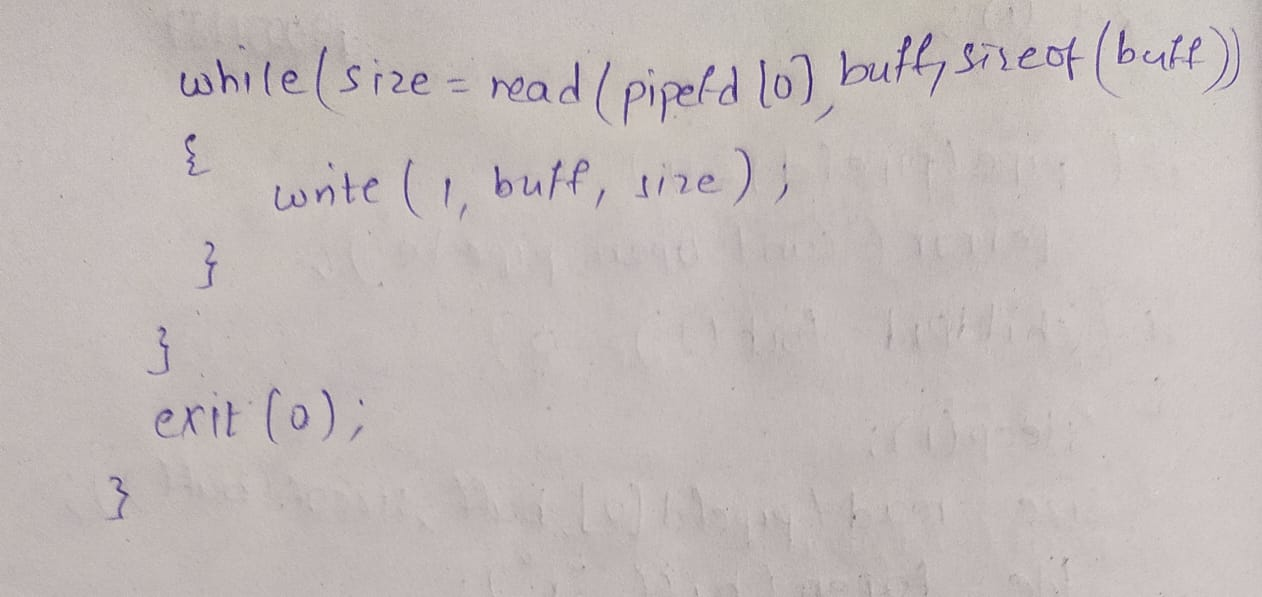 while(size = read(pipefd[0], buff, sizeof(buff))
{
write(1, buff, size);
}
}
exit(0);
}